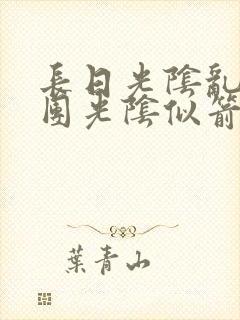 長日光陰亂
團光陰似箭
葉青山